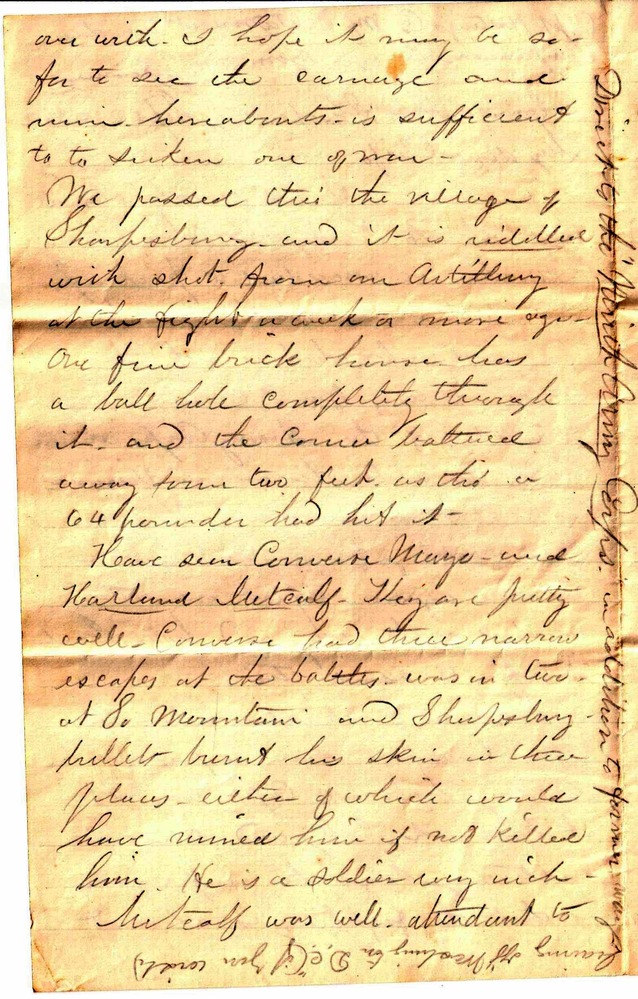 over with. I hope it may be so -
for to see the carnage and
ruin hereabouts is sufficient
to to sicken one of war -
We passed thro' the village of
Sharpesburg and it is riddelled
with shot from our Artillery
at the fight a week or more ago -
One fine brick house has
a ball hole completely through
it and the corner battered
away some two feet as tho' a
64 pounder had hit it -
Have seen Converse Mayo - and
Harland Metcalf - They are pretty
well - Converse had three narrow
escapes at the battles - was in two -
at So Mountain and Sharpsburg -
bullets burnt his skin in three
places - either of which would
have ruined him if not killed
him. He is a soldier every inch -
Metcalf was well - attendant to
Direct to the "Ninth Army Corps." in addition to former way
leaving off Washington D.C.